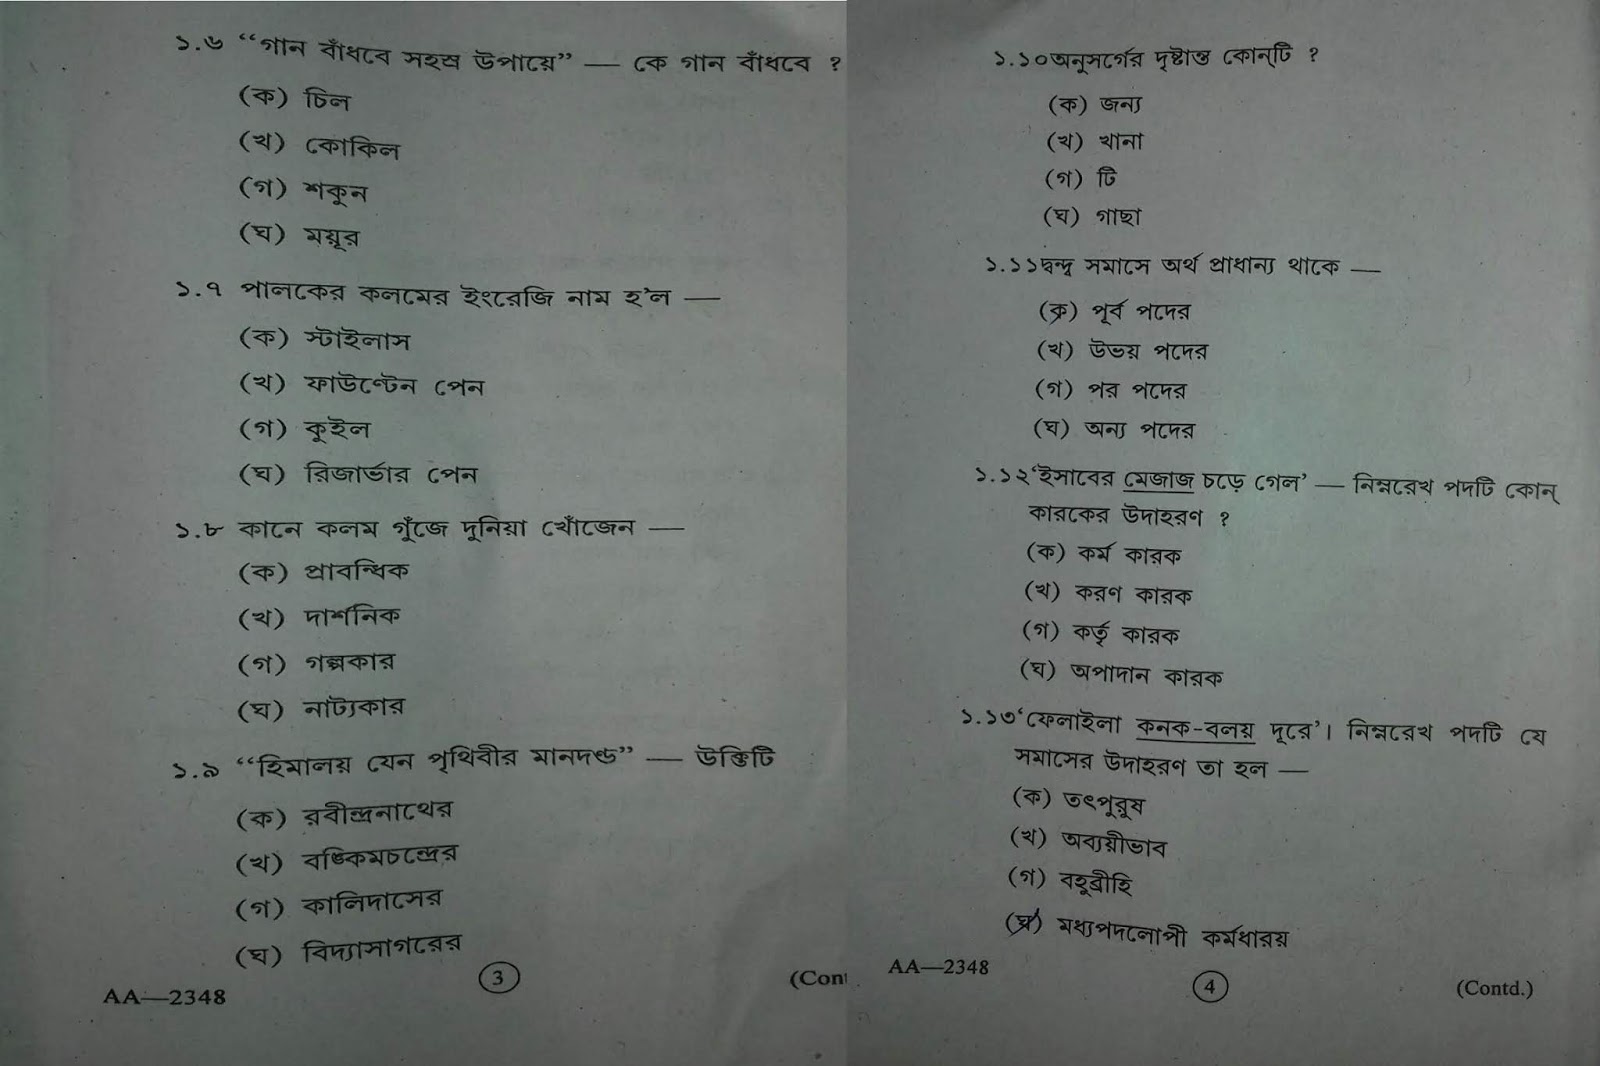 ১.৬ “গান বাঁধবে সহস্র উপায়ে” — কে গান বাঁধবে ?
(ক) চিল
(খ) কোকিল
(গ) শকুন
(ঘ) ময়ূর
১.৭ পালকের কলমের ইংরেজি নাম হ'ল —
(ক) স্টাইলাস
(খ) ফাউন্টেন পেন
(গ) কুইল
(ঘ) রিজার্ভার পেন
১.৮ কানে কলম গুঁজে দুনিয়া খোঁজেন —
(ক) প্রাবন্ধিক
(খ) দার্শনিক
(গ) গল্পকার
(ঘ) নাট্যকার
১.৯ “হিমালয় যেন পৃথিবীর মানদণ্ড” — উক্তিটি
(ক) রবীন্দ্রনাথের
(খ) বঙ্কিমচন্দ্রের
(গ) কালিদাসের
(ঘ) বিদ্যাসাগরের
AA—2348
3
(Cont
১.১০ অনুসর্গের দৃষ্টান্ত কোন্‌টি ?
(ক) জন্য
(খ) খানা
(গ) টি
(ঘ) গাছা
১.১১ দ্বন্দ্ব সমাসে অর্থ প্রাধান্য থাকে —
(ক) পূর্ব পদের
(খ) উভয় পদের
(গ) পর পদের
(ঘ) অন্য পদের
১.১২ ‘ইসাবের মেজাজ চড়ে গেল’ — নিম্নরেখ পদটি কোন্
কারকের উদাহরণ ?
(ক) কর্ম কারক
(খ) করণ কারক
(গ) কর্তৃ কারক
(ঘ) অপাদান কারক
১.১৩ ‘ফেলাইলা কনক-বলয় দূরে’। নিম্নরেখ পদটি যে
সমাসের উদাহরণ তা হল —
(ক) তৎপুরুষ
(খ) অব্যয়ীভাব
(গ) বহুব্রীহি
(ঘ) মধ্যপদলোপী কর্মধারয়
AA—2348
4
(Contd.)